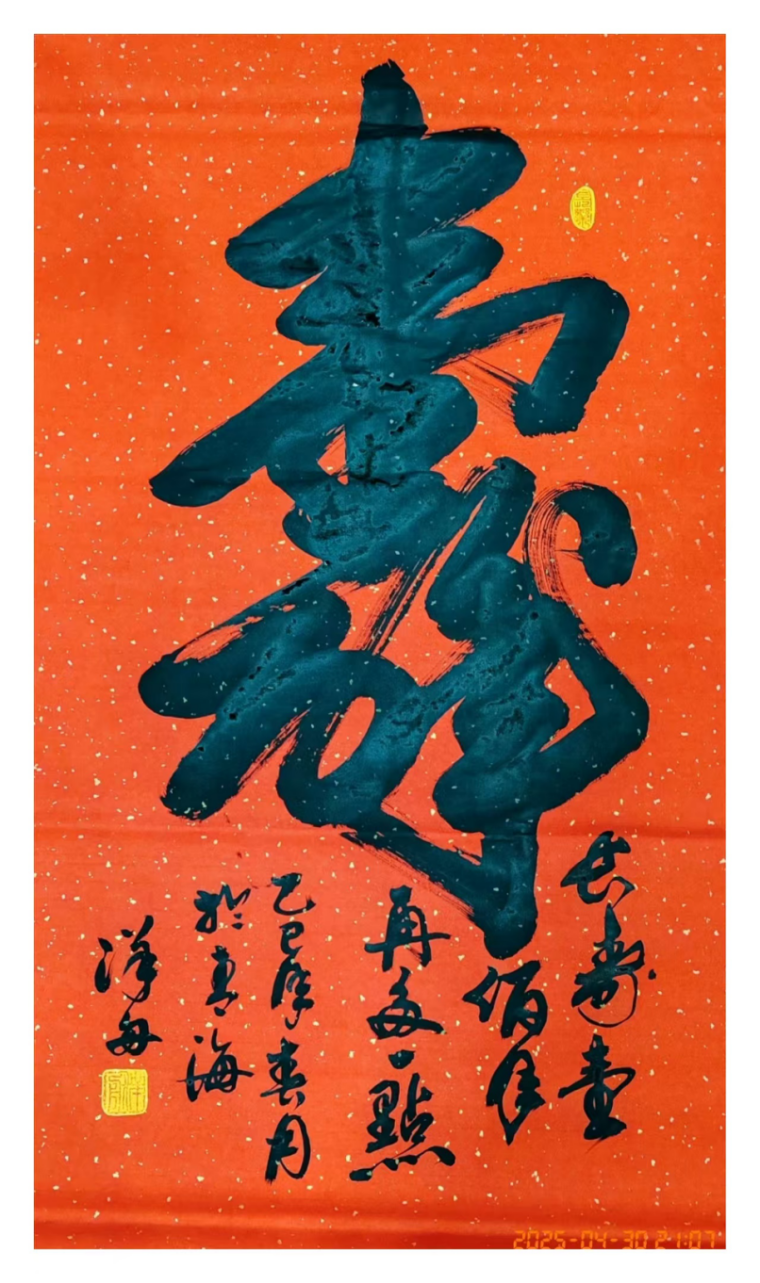 壽
长壽壹
佰年
再多一點
乙巳年春月
於青海
洋
2025-04-30 21:07